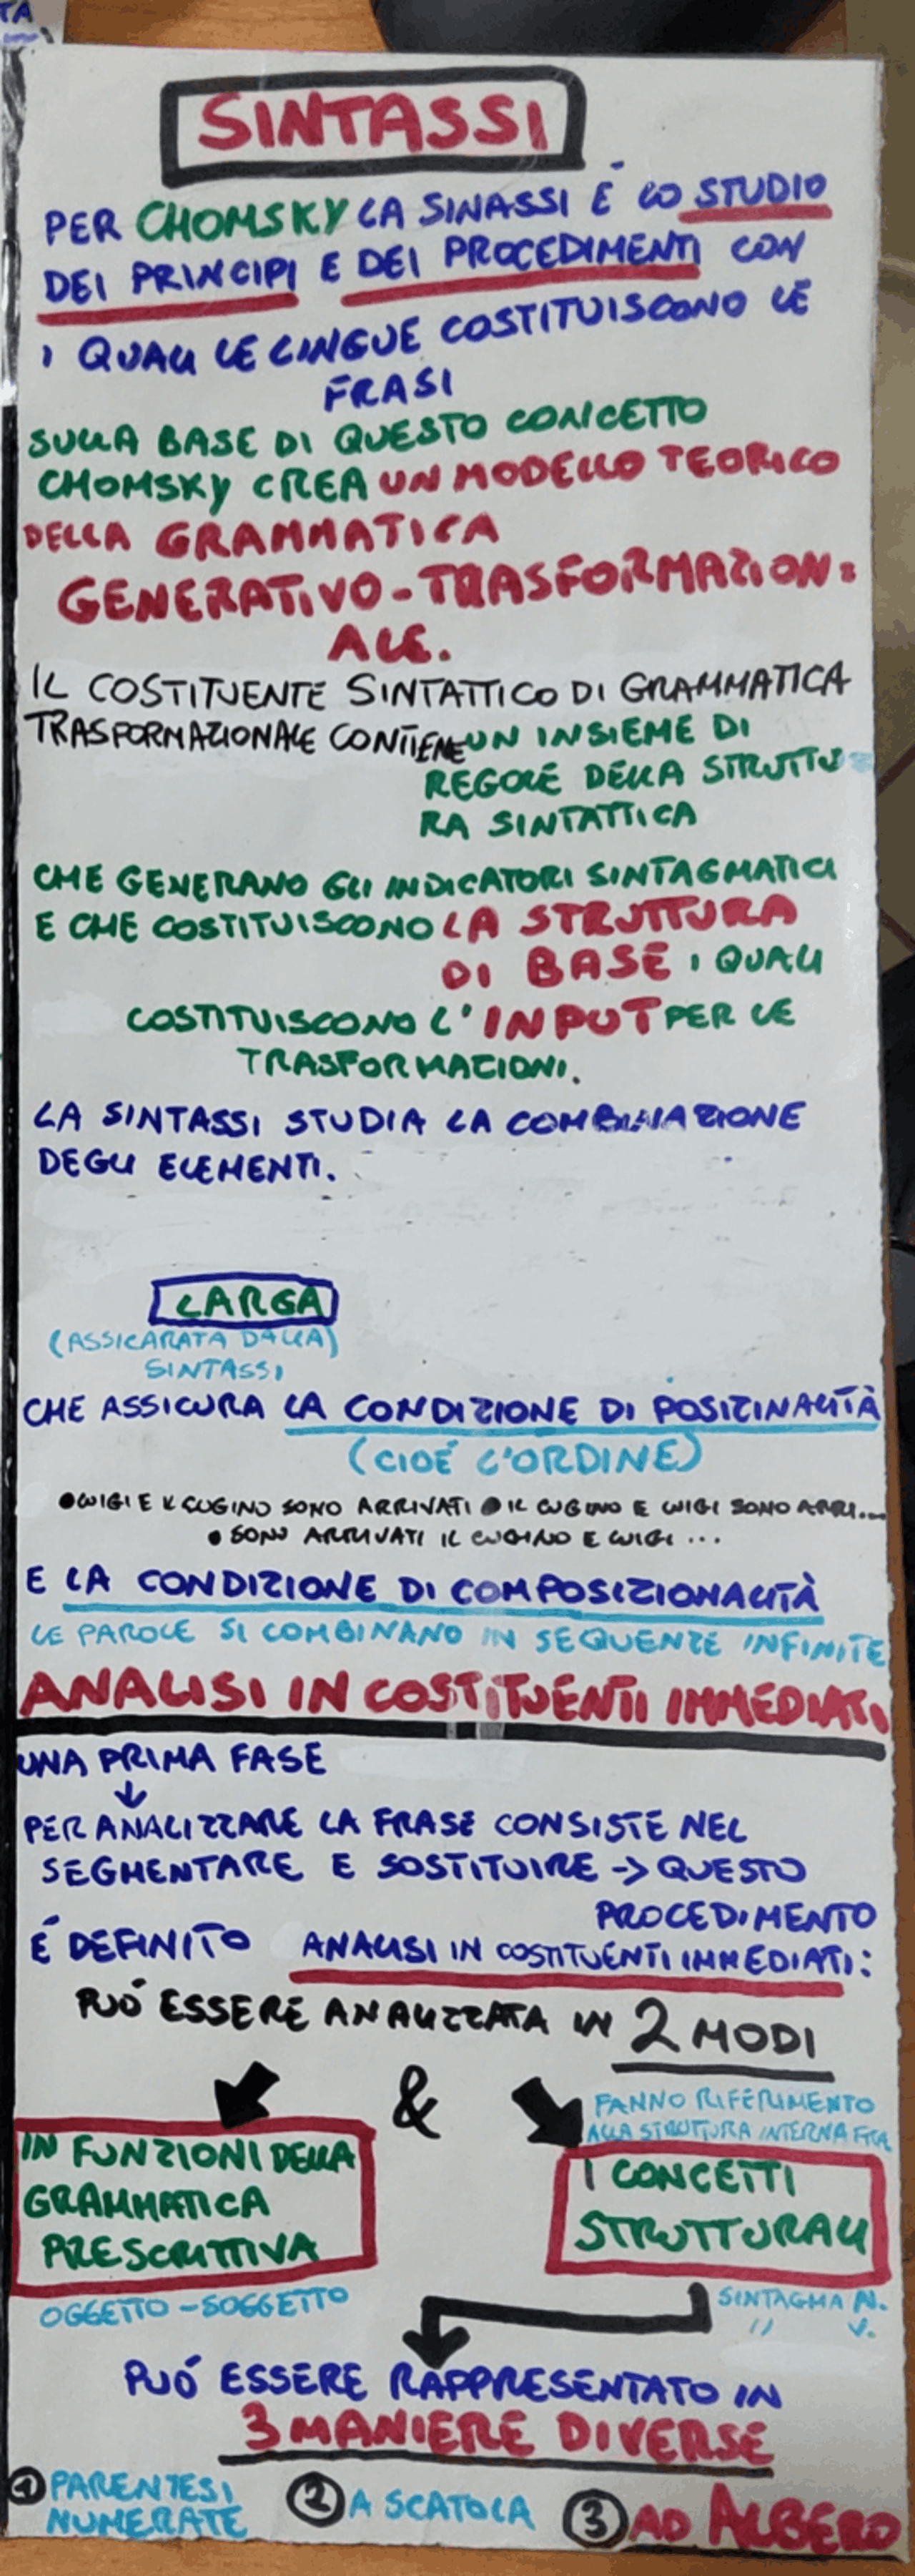 TA
SINTASSI
PER CHOMSKY LA SINASSI É LO STUDIO
DEI PRINCIPI E DEI PROCEDIMENTI CON
I QUALI LE LINGUE COSTITUISCONO LE
FRASI
SULLA BASE DI QUESTO CONCETTO
CHOMSKY CREA UN MODELLO TEORICO
DELLA GRAMMATICA
GENERATIVO-TRASFORMAZION=
ALE.
IL COSTITUENTE SINTATTICO DI GRAMMATICA
TRASFORMAZIONALE CONTIENE UN INSIEME DI
REGOLE DELLA STRUTTU=
RA SINTATTICA
CHE GENERANO GLI INDICATORI SINTAGMATICI
E CHE COSTITUISCONO LA STRUTTURA
DI BASE I QUALI
COSTITUISCONO L'INPUT PER LE
TRASFORMAZIONI.
LA SINTASSI STUDIA LA COMBINAZIONE
DEGLI ELEMENTI.
LARGA
(ASSICARATA DALLA)
SINTASSI
CHE ASSICURA LA CONDIZIONE DI POSIZINALITÀ
(CIOÉ L'ORDINE)
•LUIGI E IL CUGINO SONO ARRIVATI •IL CUGINO E LUIGI SONO ARRI...
• SONO ARRIVATI IL CUGINO E LUIGI ...
E LA CONDIZIONE DI COMPOSIZIONALITÀ
LE PAROLE SI COMBINANO IN SEQUENZE INFINITE
ANALISI IN COSTITUENTI IMMEDIATI
UNA PRIMA FASE
↓
PER ANALIZZARE LA FRASE CONSISTE NEL
SEGMENTARE E SOSTITUIRE -> QUESTO
PROCEDIMENTO
É DEFINITO ANALISI IN COSTITUENTI IMMEDIATI:
PUÓ ESSERE ANALIZZATA IN 2 MODI
&
FANNO RIFERIMENTO
ALLA STRUTTURA INTERNA FRA
IN FUNZIONI DELLA
GRAMMATICA
PRESCRITTIVA
I CONCETTI
STRUTTURALI
OGGETTO - SOGGETTO
SINTAGMA N.
" V.
PUÓ ESSERE RAPPRESENTATO IN
3 MANIERE DIVERSE
1 PARENTESI
NUMERATE
2 A SCATOLA
3 AD ALBERO